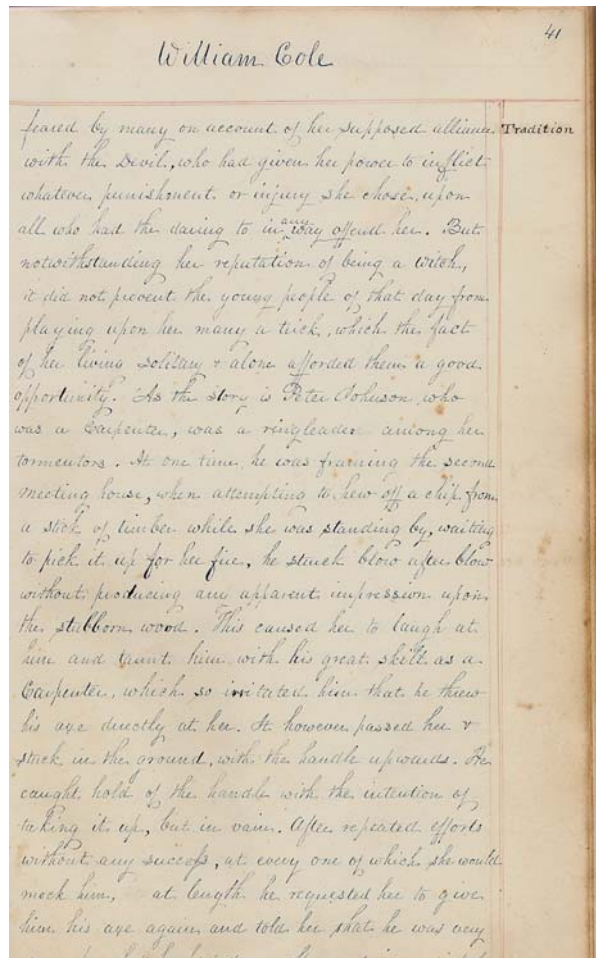 41
William Cole
feared by many on account of her supposed alliance
Tradition
with the Devil, who had given her power to inflict
whatever punishment or injury she chose, upon
all who had the daring to in any way offend her. But
notwithstanding her reputation of being a witch,
it did not prevent the young people of that day from
playing upon her many a trick, which the fact
of her living solitary & alone afforded them a good
opportunity. As the story is Peter Johnson, who
was a Carpenter, was a ringleader among her
tormentors. At one time, he was framing the second
meeting house, when attempting to hew off a chip from
a stick of timber while she was standing by, waiting
to pick it up for her fire, he struck blow after blow
without producing any apparent impression upon
the stubborn wood. This caused her to laugh at
him and taunt him with his great skill as a
Carpenter, which so irritated him that he threw
his axe directly at her. It however passed her &
stuck in the ground, with the handle upwards. He
caught hold of the handle with the intention of
taking it up, but in vain. After repeated efforts
without any success, at every one of which she would
mock him, at length he requested her to give
him his axe again and told her that he was very